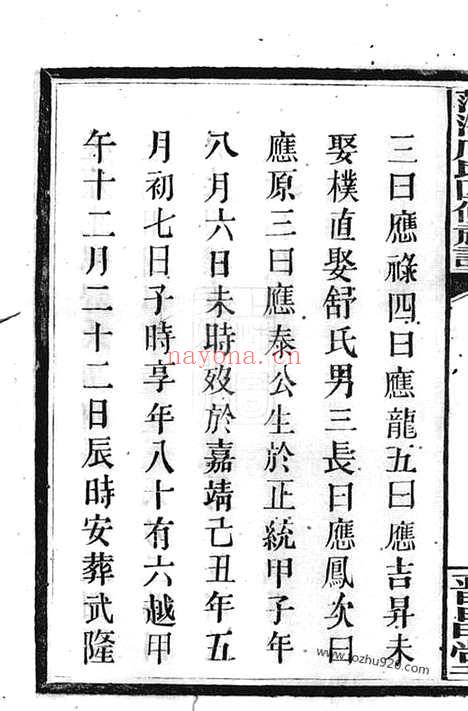 三曰應祿四曰應龍五曰應吉昇未
娶樸直娶舒氏男三長曰應鳳次曰
應原三曰應泰公生於正統甲子年
八月六日未時歿於嘉靖己丑年五
月初七日子時享年八十有六越甲
午十二月二十二日辰時安葬武隆
nayona.cn
www.fozhu920.com